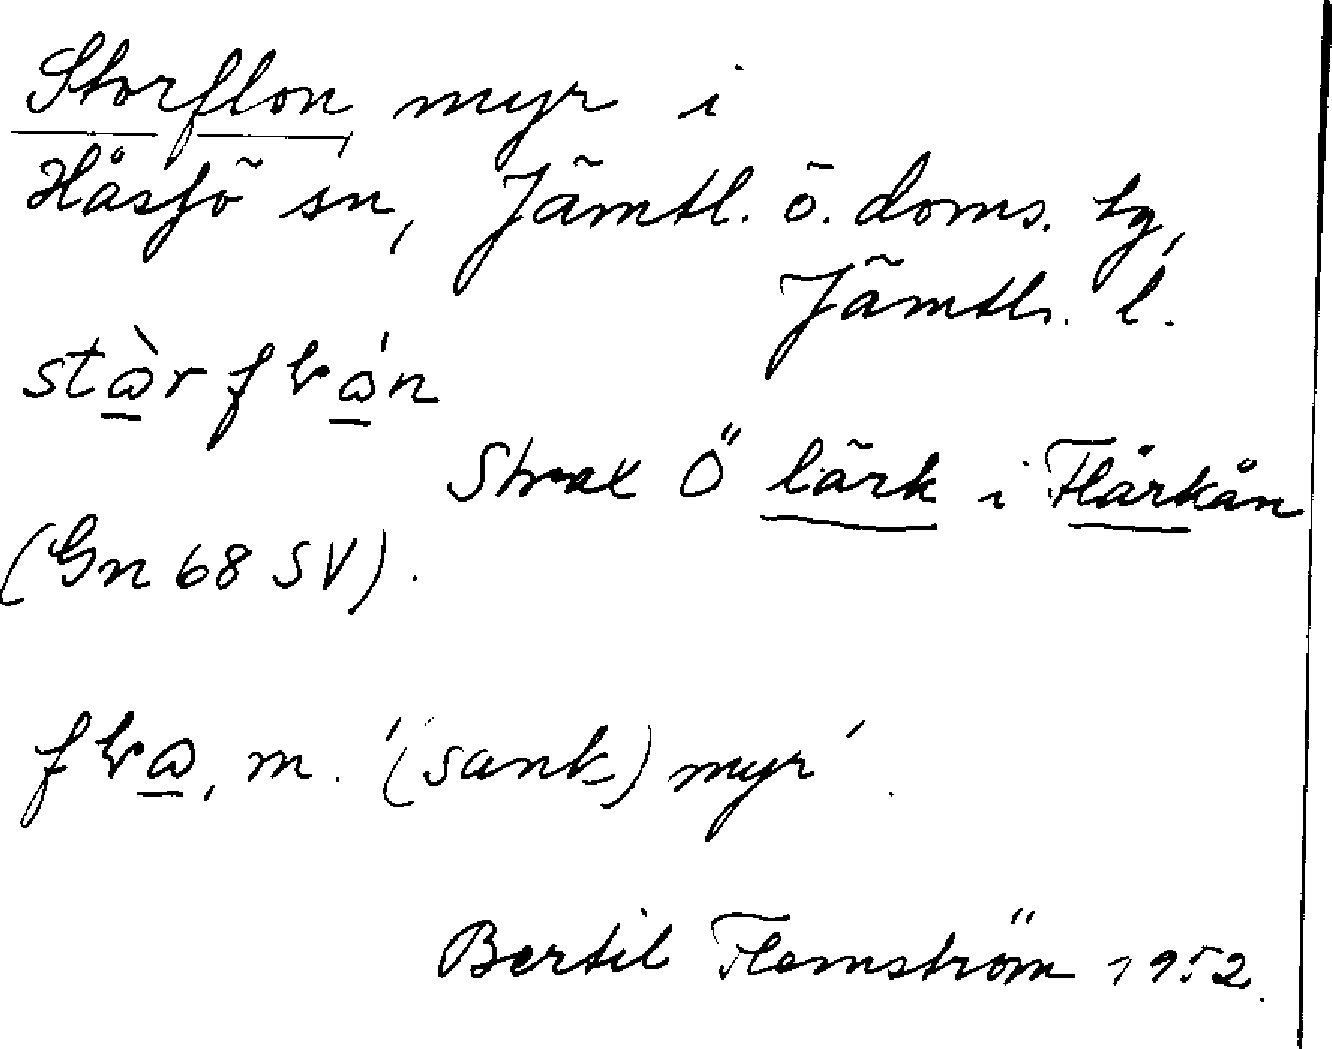 Storflon, myr i
Håsjö sn, Jämtl. ö. doms. tg,
Jämtls. l.
stɷ̠̀r fɽɷ̠́n
Strax Ö lärk i Flärkån
(Gn 68 SV).
fɽɷ̠, m. '(sank) myr'.
Bertil Flemström 1952.